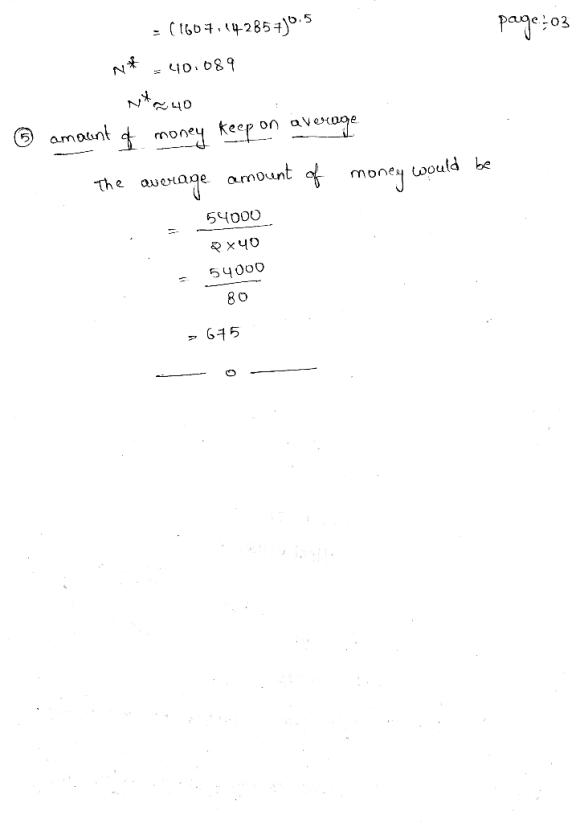 = (1607.142857)^0.5
page:03
N* = 40.089
N* ≈ 40
⑤ amount of money keep on average
The average amount of money would be
= 54000
2×40
= 54000
80
= 675
—— 0 ——